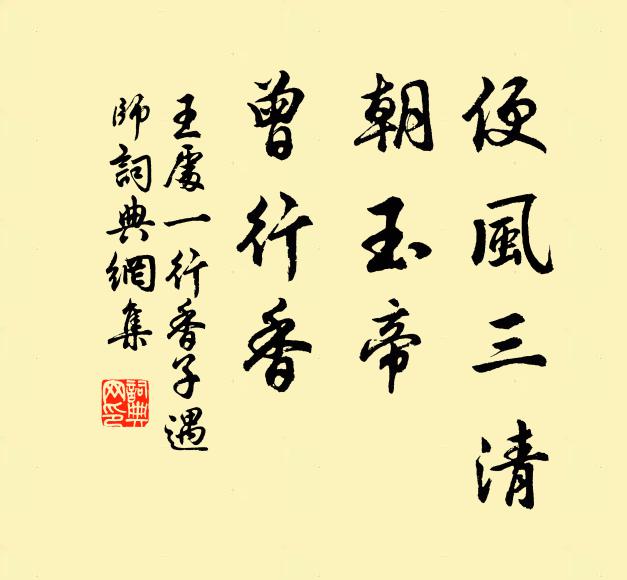 便風三清
朝玉帝
曾行香
王處一行香子遇
師詞典網集
詞典
网印